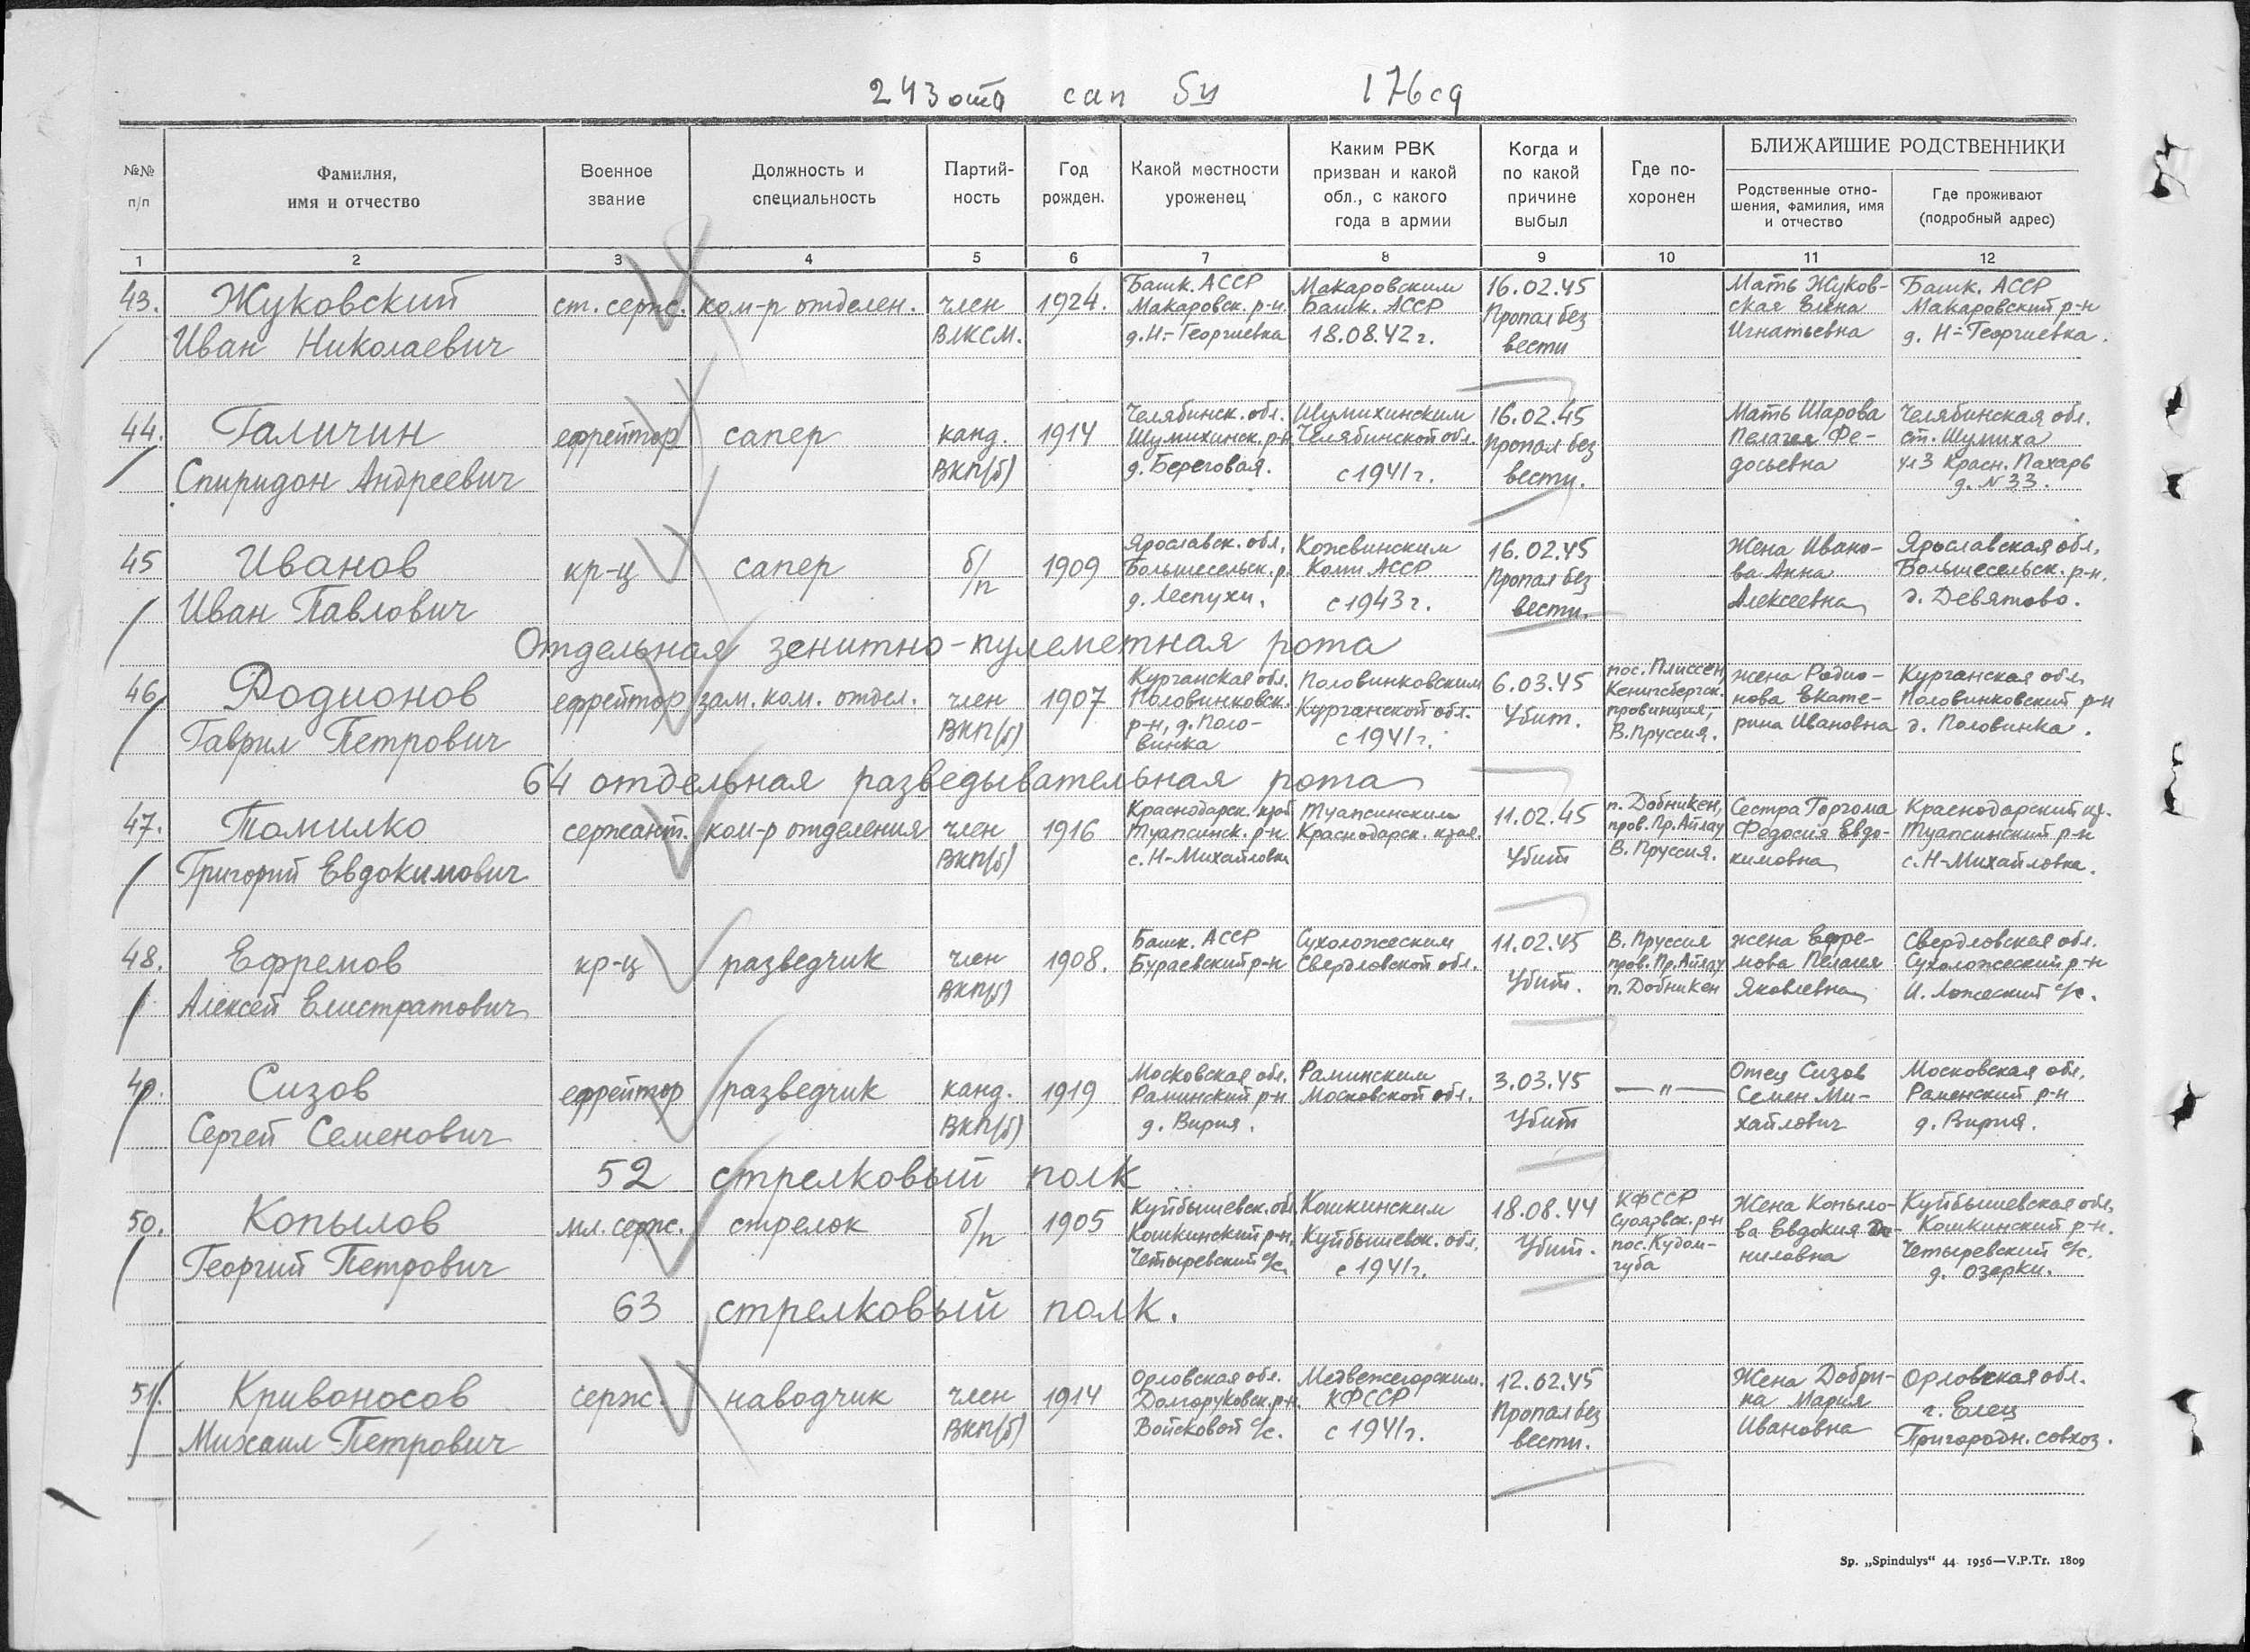 243 отд сап бн 176 сд
№№ п/п
Фамилия, имя и отчество
Военное звание
Должность и специальность
Партий- ность
Год рожден.
Какой местности уроженец
Каким РВК призван и какой обл., с какого года в армии
Когда и по какой причине выбыл
Где по- хоронен
БЛИЖАЙШИЕ РОДСТВЕННИКИ
Родственные отно- шения, фамилия, имя и отчество
Где проживают (подробный адрес)
1 2 3 4 5 6 7 8 9 10 11 12
43. Жуковский Иван Николаевич
ст. серж.
ком-р отделен.
член ВЛКСМ.
1924.
Башк. АССР Макаровск. р-н. д. Н-Георгиевка
Макаровским Башк. АССР 18.08.42 г.
16.02.45 Пропал без вести
Мать Жуков- ская Елена Игнатьевна
Башк. АССР Макаровский р-н д. Н-Георгиевка.
44. Галичин Спиридон Андреевич
ефрейтор
сапер
канд. ВКП(б)
1914
Челябинск. обл. Шумихинск. р-н. д. Береговая.
Шумихинским Челябинской обл. с 1941 г.
16.02.45 Пропал без вести.
Мать Шарова Пелагея Фе- досьевна
Челябинская обл. ст. Шумиха Красн. Пахарь д. N 33.
45 Иванов Иван Павлович
кр-ц
сапер
б/п
1909
Ярославск. обл. Большесельск. р. д. Леспухи.
Кожвинским Коми АССР с 1943 г.
16.02.45 Пропал без вести.
Жена Ивано- ва Анна Алексеевна
Ярославская обл. Большесельск. р-н. д. Девятово.
Отдельная зенитно-пулеметная рота
46 Родионов Гаврил Петрович
ефрейтор
зам. ком. отдел.
член ВКП(б)
1907
Курганская обл. Половинковск. р-н, д. Поло- винка
Половинковским Курганской обл. с 1941 г.
6.03.45 Убит.
пос. Плиссен, Кенигсбергск. провинция, В. Пруссия.
жена Родио- нова Екате- рина Ивановна
Курганская обл. Половинковский р-н д. Половинка.
64 отдельная разведывательная рота
47. Томилко Григорий Евдокимович
сержант.
ком-р отделения
член ВКП(б)
1916
Краснодарск. край Туапсинск. р-н. с. Н-Михайловка
Туапсинским Краснодарск. края.
11.02.45 Убит
п. Добникен, пров. Пр. Айлау В. Пруссия.
Сестра Горгома Федосия Евдо- кимовна
Краснодарский кр. Туапсинский р-н с. Н-Михайловка.
48. Ефремов Алексей Елистратович
кр-ц
разведчик
член ВКП(б)
1908.
Башк. АССР Бураевский р-н
Сухоложеским Свердловской обл.
11.02.45 Убит.
В. Пруссия пров. Пр. Айлау п. Добникен
жена Ефре- мова Пелагея Яковлевна
Свердловская обл. Сухоложеский р-н И. Ложеский с/с.
49. Сизов Сергей Семенович
ефрейтор
разведчик
канд. ВКП(б)
1919
Московская обл. Раминский р-н д. Вирия.
Раминским Московской обл.
3.03.45 Убит
— " —
Отец Сизов Семен Ми- хайлович
Московская обл. Раменский р-н д. Вирия.
52 стрелковый полк
50. Копылов Георгий Петрович
мл. серж.
стрелок
б/п
1905
Куйбышевск. обл. Кошкинский р-н. Четыревский с/с.
Кошкинским Куйбышевск. обл. с 1941 г.
18.08.44 Убит.
КФССР Суоярвск. р-н пос. Кудом- губа
Жена Копыло- ва Евдокия Да- ниловна
Куйбышевская обл. Кошкинский р-н. Четыревский с/с. д. Озерки.
63 стрелковый полк.
51. Кривоносов Михаил Петрович
серж.
наводчик
член ВКП(б)
1914
Орловская обл. Долгоруковск. р-н. Войсковой с/с.
Медвежегорским. КФССР с 1941 г.
12.02.45 Пропал без вести.
Жена Добри- на Мария Ивановна
Орловская обл. г. Елец Пригородн. совхоз.
Sp. „Spindulys“ 44 1956—V.P.Tr. 1809